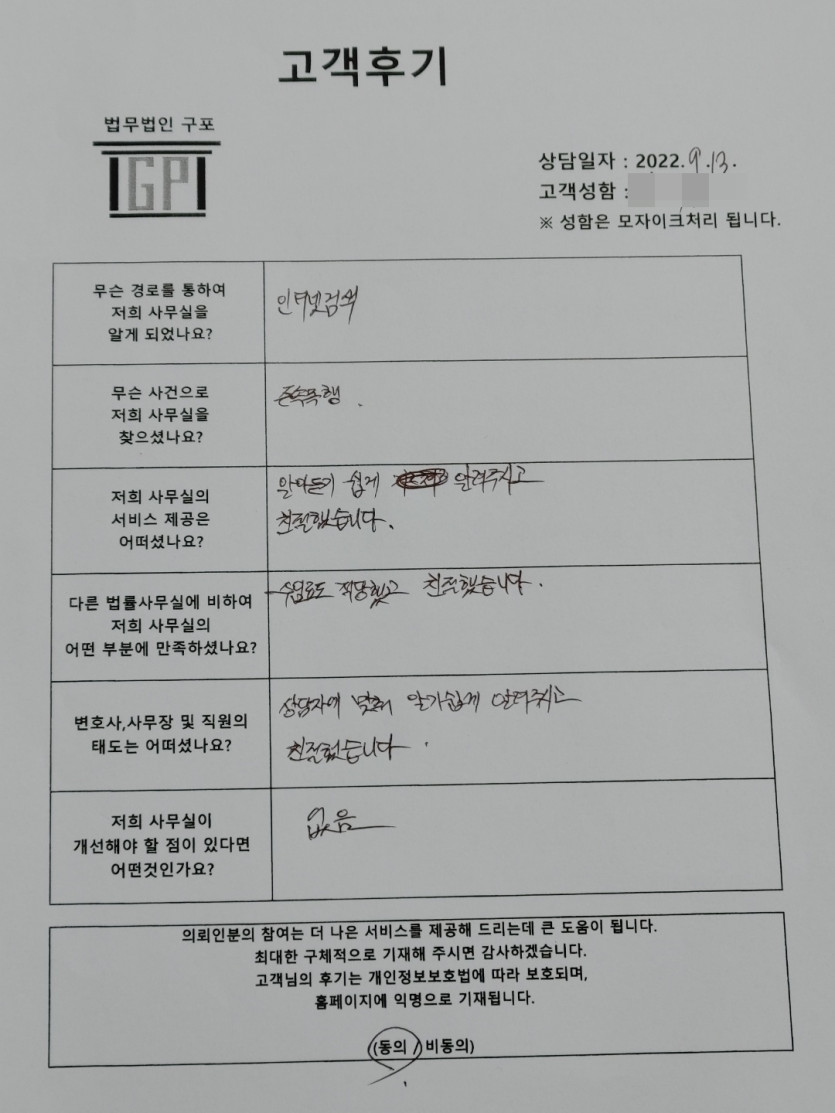 고객후기
법무법인 구포
GP
상담일자 : 2022. 9. 13.
고객성함 :
※ 성함은 모자이크처리 됩니다.
무슨 경로를 통하여
저희 사무실을
알게 되었나요?
인터넷검색
무슨 사건으로
저희 사무실을
찾으셨나요?
존속폭행.
저희 사무실의
서비스 제공은
어떠셨나요?
알아듣기 쉽게 알려주시고
친절했습니다.
다른 법률사무실에 비하여
저희 사무실의
어떤 부분에 만족하셨나요?
수임료도 적당했고 친절했습니다.
변호사,사무장 및 직원의
태도는 어떠셨나요?
상담자에 맞춰 알기쉽게 알려주시고
친절했습니다.
저희 사무실이
개선해야 할 점이 있다면
어떤것인가요?
없음
의뢰인분의 참여는 더 나은 서비스를 제공해 드리는데 큰 도움이 됩니다.
최대한 구체적으로 기재해 주시면 감사하겠습니다.
고객님의 후기는 개인정보보호법에 따라 보호되며,
홈페이지에 익명으로 기재됩니다.
(동의 / 비동의)